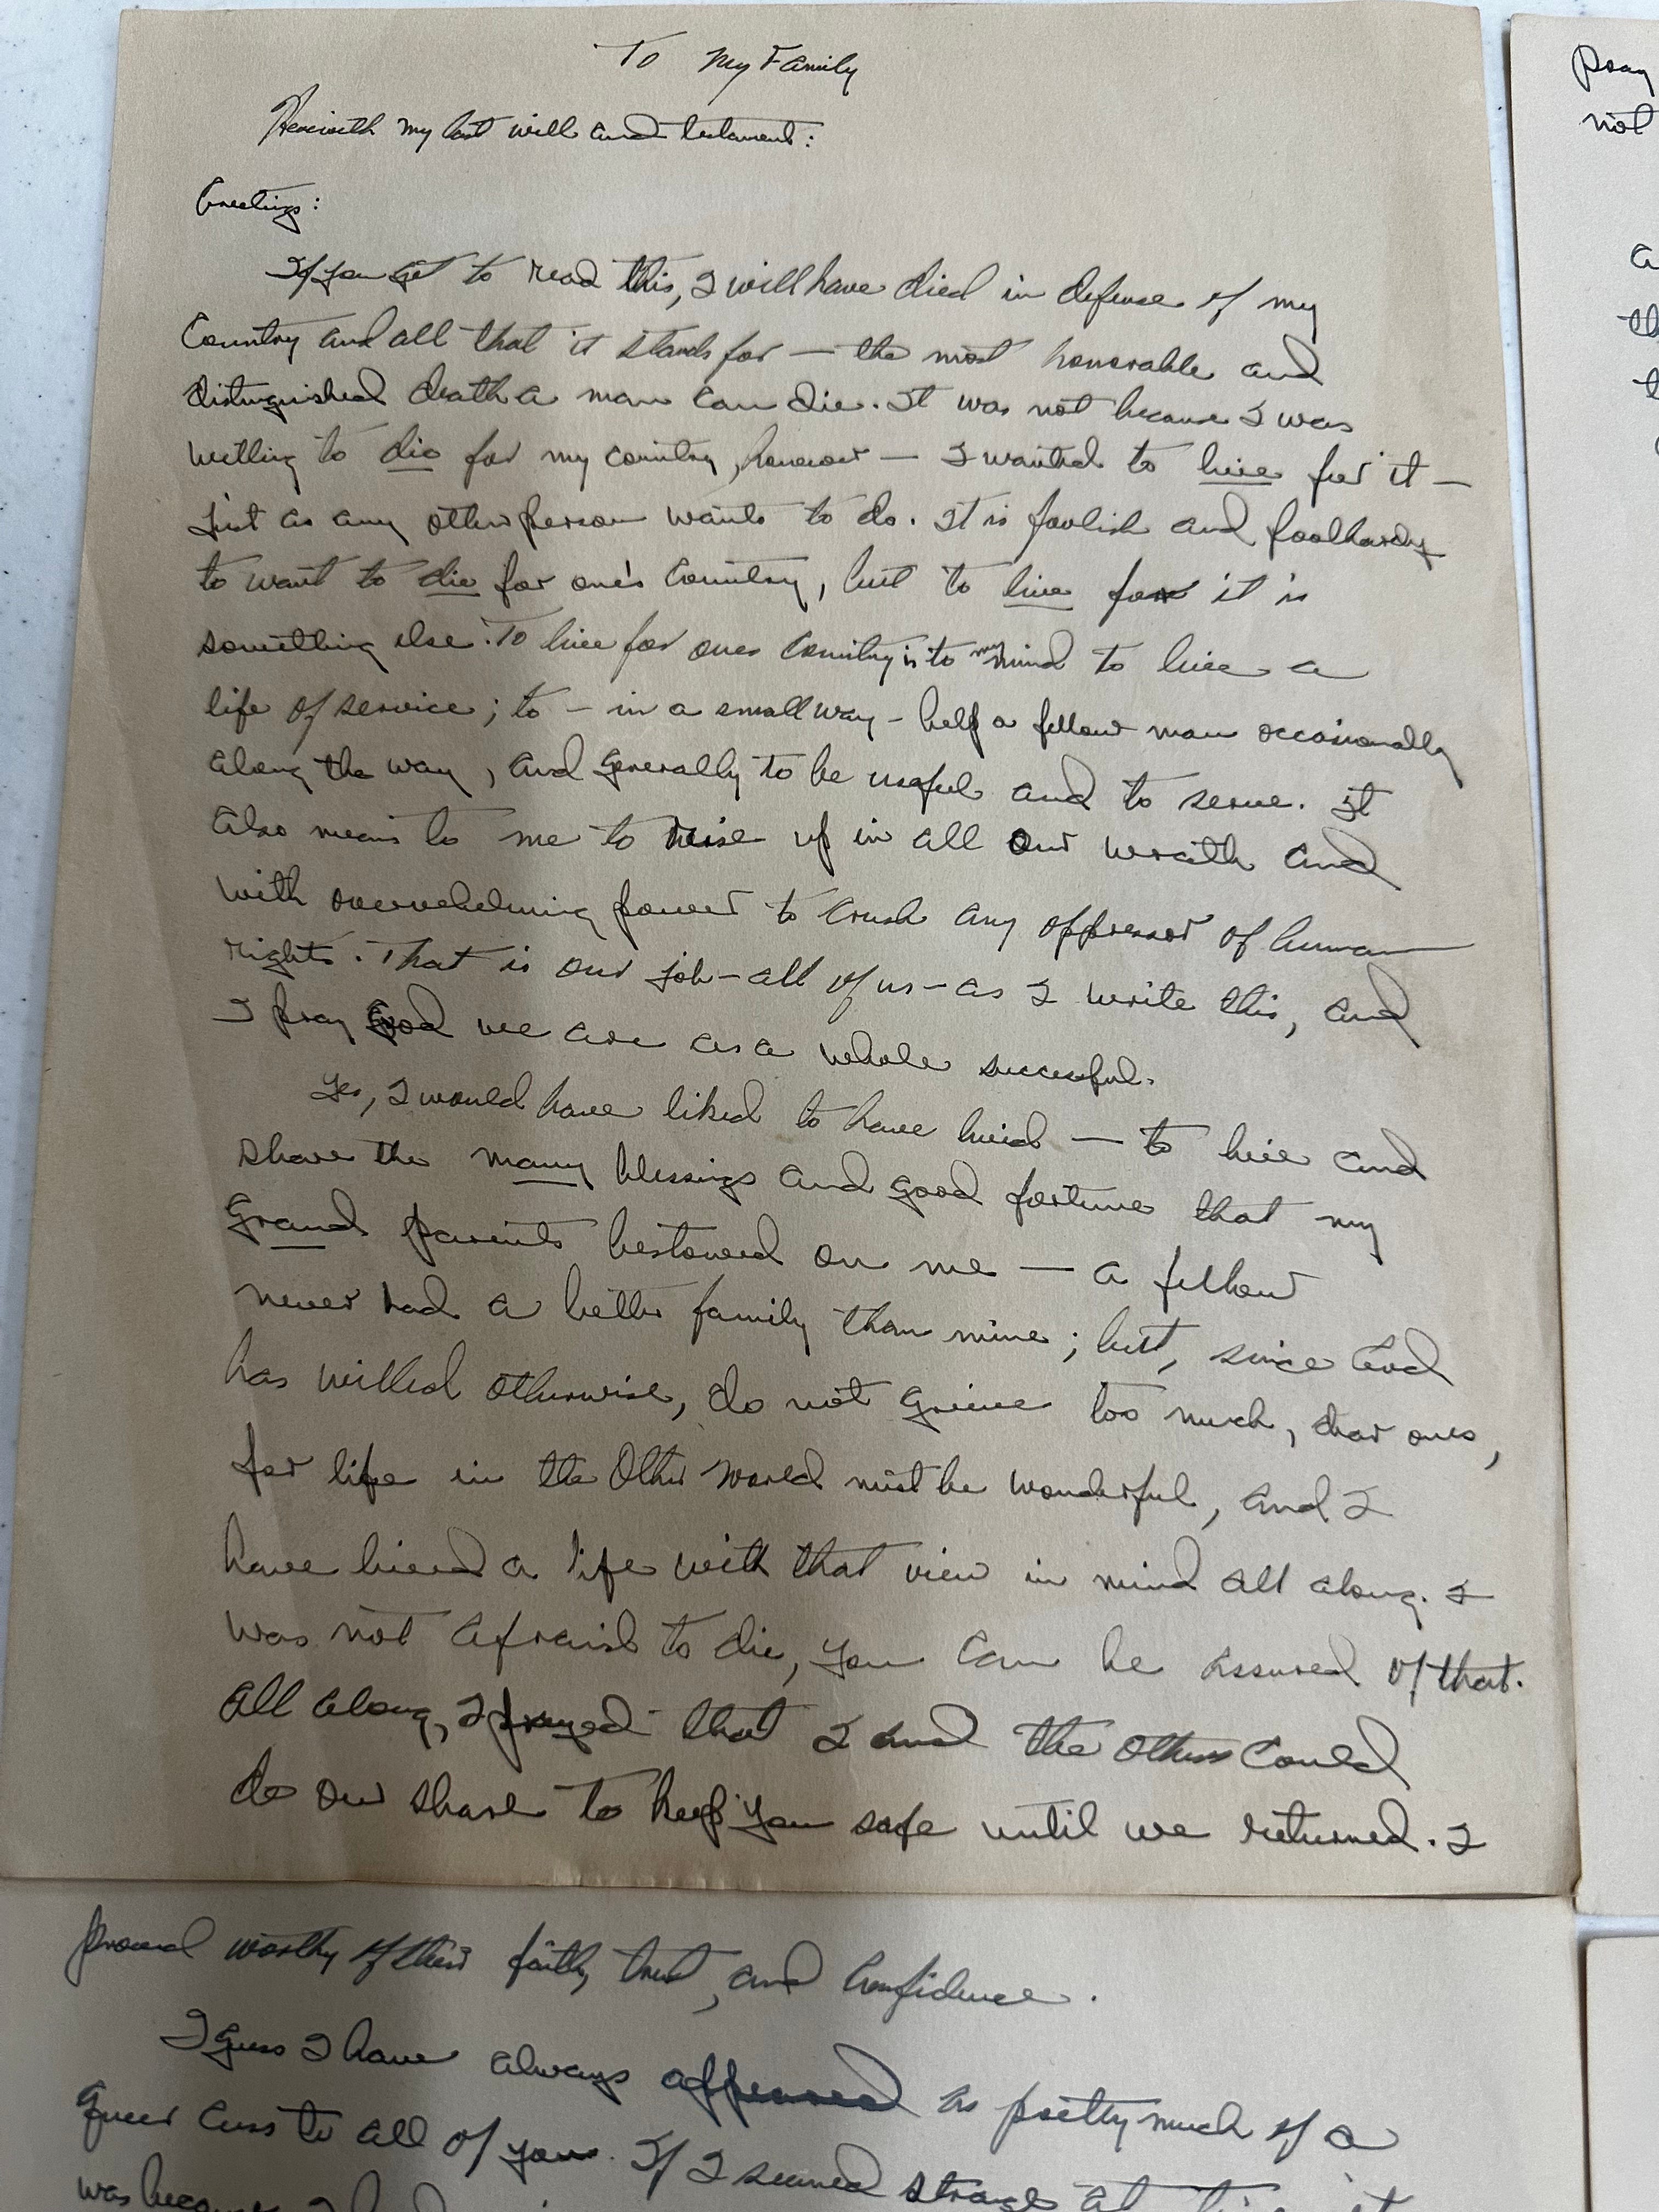 To My Family
Herewith my last will and testament:
Greetings:
If you get to read this, I will have died in defense of my
Country and all that it stands for — the most honorable and
distinguished death a man can die. It was not because I was
willing to die for my country, however — I wanted to live for it —
just as any other person wants to do. It is foolish and foolhardy
to want to die for one's country, but to live for it is
something else. To live for ones country is to my mind to live a
life of service; to - in a small way - help a fellow man occasionally
along the way, and generally to be useful and to serve. It
also means to me to rise up in all our wrath and
with overwhelming power to crush any oppressor of human
rights. That is our job - all of us - as I write this, and
I pray God we are as a whole successful.
Yes, I would have liked to have lived — to live and
share the many blessings and good fortune that my
Grand parents bestowed on me — a fellow
never had a better family than mine; but, since God
has willed otherwise, do not grieve too much, dear ones,
for life in the Other World must be wonderful, and I
have lived a life with that view in mind all along. I
was not afraid to die, you can be assured of that.
All along, I prayed that I and the others could
do our share to keep you safe until we returned. I
proved worthy of their faith, trust, and confidence.
I guess I have always appeared as pretty much of a
queer cuss to all of you. If I seemed strange at times, it
was because I had
Pray
not